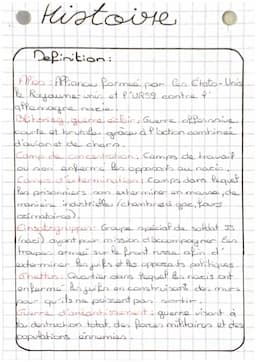 Histoire
Définition:
Alliés: Alliance formée par les Etats-Unis
le Royaume-uni, et l'URSS contre l'
Allemagne nazie.
Blitzkrieg, guerre éclair: Guerre offensive
courte et brutale grâce à l'action combinée
d'avion et de chars.
Camp de concentration: Camps de travail
ou son enfermé les opposants au nazie.
Camp d'extermination: Camps dans lequel
les prisonniers son exterminer en masse, de
manière industrielle (chambre à gaz, fours
crématoire).
Einsatzgruppen: Groupe spécial de soldat SS
(nazi) ayant pour mission d'accompagner les
troupes armée sur le front russe afin d'
exterminer les juifs et les opposants politiques.
Ghettos: Quartier dans lequel les nazis ont
enfermé les juifs en construisant des murs
pour qu'ils ne puissent pas sortir.
Guerre d'anéantissement: guerre visant à
la destruction total, des forces militaires et des
populations ennemies.